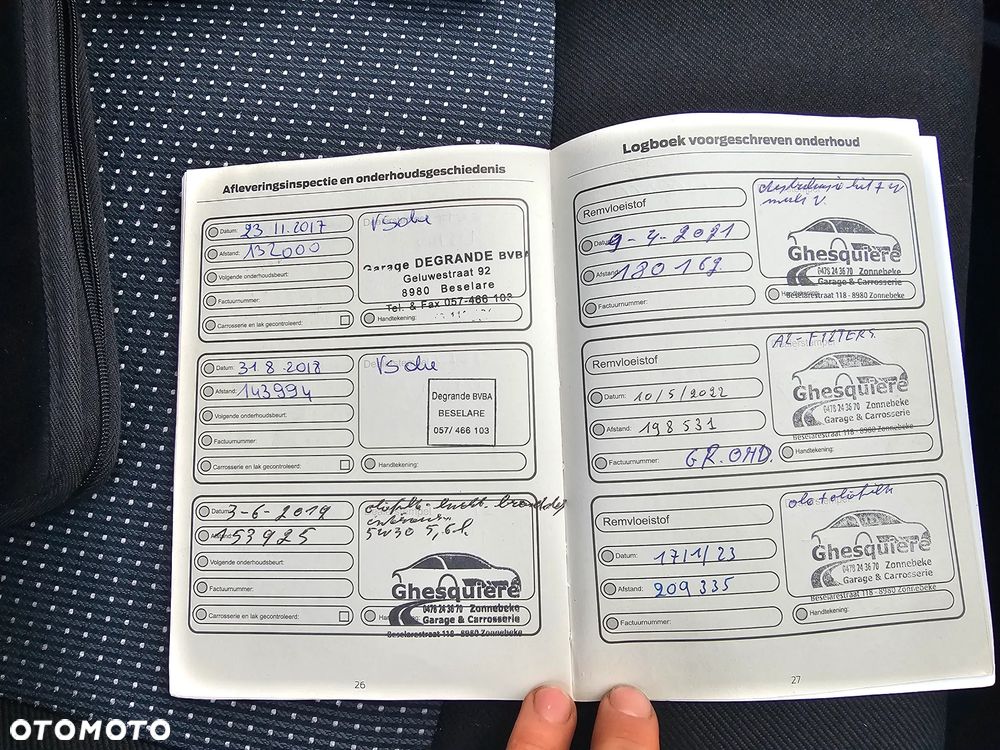 Afleveringsinspectie en onderhoudsgeschiedenis
Datum: 23 11.2017
Afstand: 132000
Volgende onderhoudsbeurt:
Factuurnummer:
Carrosserie en lak gecontroleerd:
Garage DEGRANDE BVBA
Geluwestraat 92
8980 Beselare
Tel. & Fax 057-466 103
Handtekening:
Datum: 31 8 2018
Afstand: 143994
Volgende onderhoudsbeurt:
Factuurnummer:
Carrosserie en lak gecontroleerd:
Degrande BVBA
BESELARE
057/ 466 103
Handtekening:
Datum: 3-6-2019
153925
Volgende onderhoudsbeurt:
Factuurnummer:
Carrosserie en lak gecontroleerd:
5W30 5,6l.
Ghesquiere
0478 24 36 70 Zonnebeke
Garage & Carrosserie
Beselarestraat 118 - 8980 Zonnebeke
26
Logboek voorgeschreven onderhoud
Remvloeistof
Datum: 9-4-2021
Afstand: 180169
Factuurnummer:
Ghesquiere
0478 24 36 70 Zonnebeke
Garage & Carrosserie
Handtekening:
Beselarestraat 118 - 8980 Zonnebeke
Remvloeistof
Datum: 10/5/2022
Afstand: 198531
Factuurnummer: GR. OHD.
AL-FILTERS.
Ghesquiere
0478 24 36 70 Zonnebeke
Garage & Carrosserie
Beselarestraat 118 - 8980 Zonnebeke
Handtekening:
Remvloeistof
Datum: 17/1/23
Afstand: 209335
Factuurnummer:
Ghesquiere
0478 24 36 70 Zonnebeke
Garage & Carrosserie
Beselarestraat 118 - 8980 Zonnebeke
Handtekening:
27
OTOMOTO